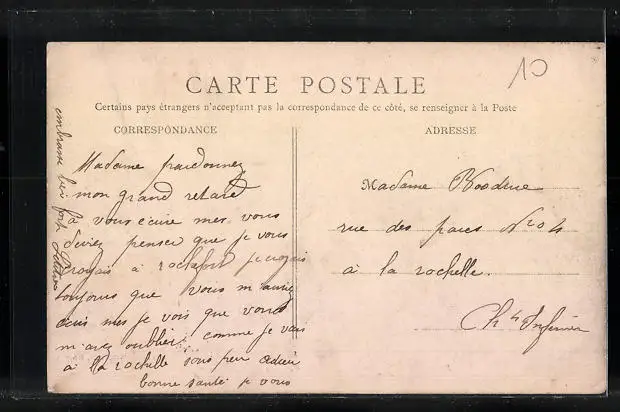 10
CARTE POSTALE
Certains pays étrangers n'acceptant pas la correspondance de ce côté, se renseigner à la Poste
CORRESPONDANCE
Madame pardonnez
mon grand retard
à vous écrire mes vous
deviez penser que je vous
croyais à rochefort je croyais
toujours que vous m'auriez
écris mes je vois que vous
m'avez oublier comme je vais
à la rochelle sous peu adieu
bonne santé je vous
embrasse bien fort
ADRESSE
Madame
rue des parcs No 4
à la rochelle.
Ch te Inférieure